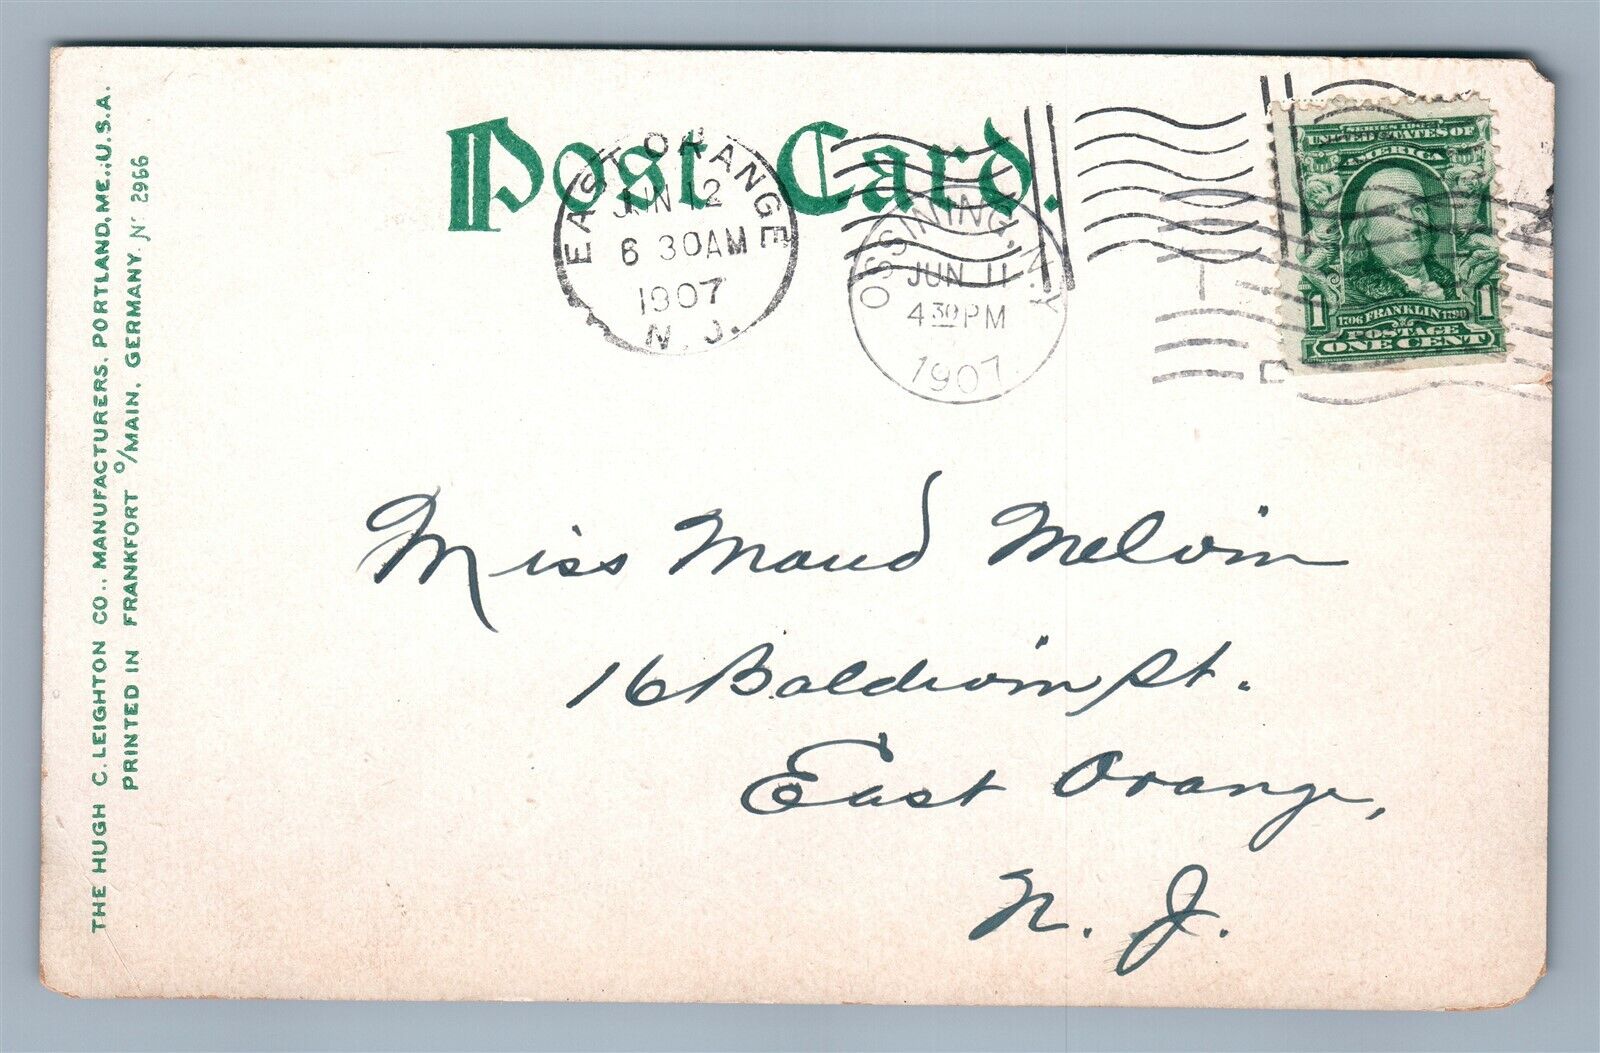 Post Card.
EAST ORANGE
JUN 12
6 30AM
1907
N. J.
OSSINING, N.Y
JUN 11
4 30 PM
1907
SERIES 1902
UNITED STATES OF
AMERICA
1706 FRANKLIN 1790
1 1
POSTAGE
ONE CENT
Miss Maud Melvin
16 Baldwin St.
East Orange,
N. J.
THE HUGH C. LEIGHTON CO., MANUFACTURERS, PORTLAND, ME., U.S.A.
PRINTED IN FRANKFORT o/MAIN, GERMANY. No 2966